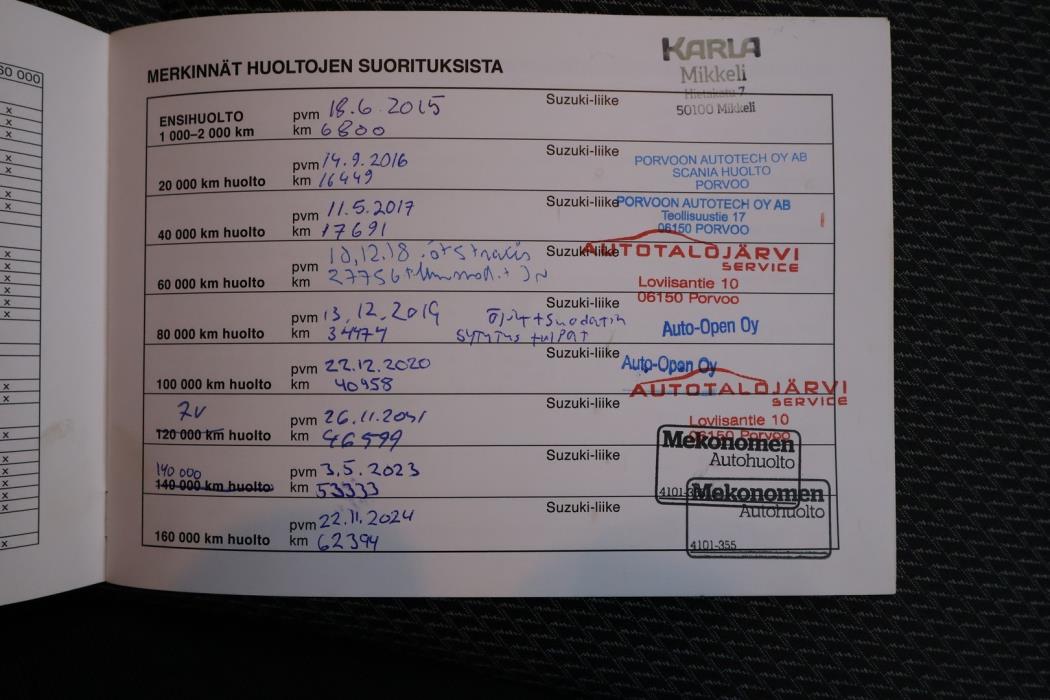 60 000
MERKINNÄT HUOLTOJEN SUORITUKSISTA
KARLA
Mikkeli
Hietakatu 7
50100 Mikkeli
ENSIHUOLTO
1 000–2 000 km
pvm 18.6.2015
km 6800
Suzuki-liike
20 000 km huolto
pvm 14.9.2016
km 16449
Suzuki-liike
PORVOON AUTOTECH OY AB
SCANIA HUOLTO
PORVOO
40 000 km huolto
pvm 11.5.2017
km 17691
Suzuki-liike
PORVOON AUTOTECH OY AB
Teollisuustie 17
06150 PORVOO
60 000 km huolto
pvm 18.12.18
km 27756
Suzuki-liike
AUTOTALOJÄRVI
SERVICE
Loviisantie 10
06150 Porvoo
80 000 km huolto
pvm 13.12.2019
km 34474
Öljyt+suodatin
sytytys tulpat
Suzuki-liike
Auto-Open Oy
100 000 km huolto
pvm 22.12.2020
km 40958
Suzuki-liike
Auto-Open Oy
7v
120 000 km huolto
pvm 26.11.2021
km 46599
Suzuki-liike
AUTOTALOJÄRVI
SERVICE
Loviisantie 10
06150 Porvoo
140 000
140 000 km huolto
pvm 3.5.2023
km 53333
Suzuki-liike
Mekonomen
Autohuolto
160 000 km huolto
pvm 22.11.2024
km 62394
Suzuki-liike
Mekonomen
Autohuolto
4101-355